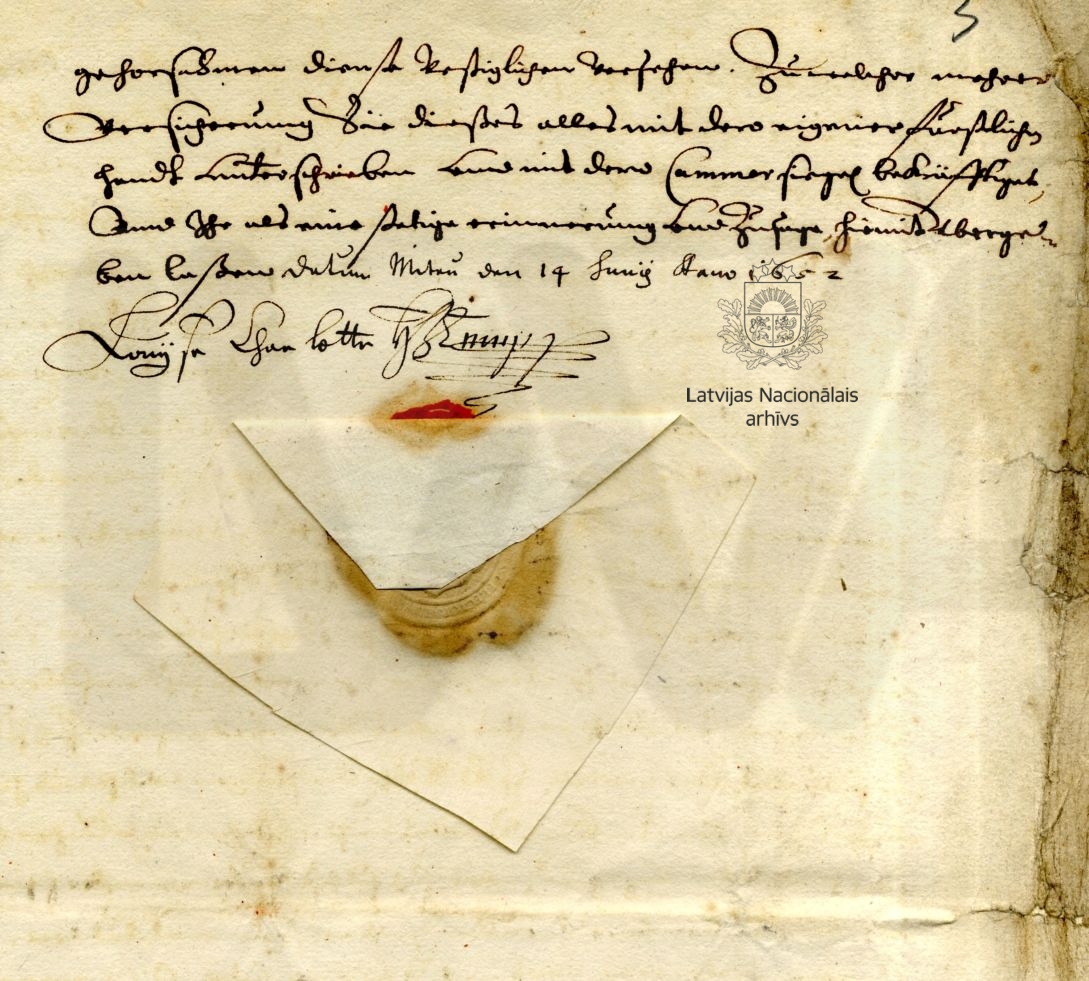 3
gehorsahmen dienste bestiglichen versehen. Zu welcher mehrer
versicherung Sie dießes alles mit dero eigener fürstlichen
handt unterschrieben und mit dero Cammer siegel bekräfftiget,
Und Ihr als eine stetige erinnerung und Zusage, hiemit überge-
ben laßen datum Mitau den 14 Junij Anno 1652
Louyse Charlotte
Latvijas Nacionālais
arhīvs